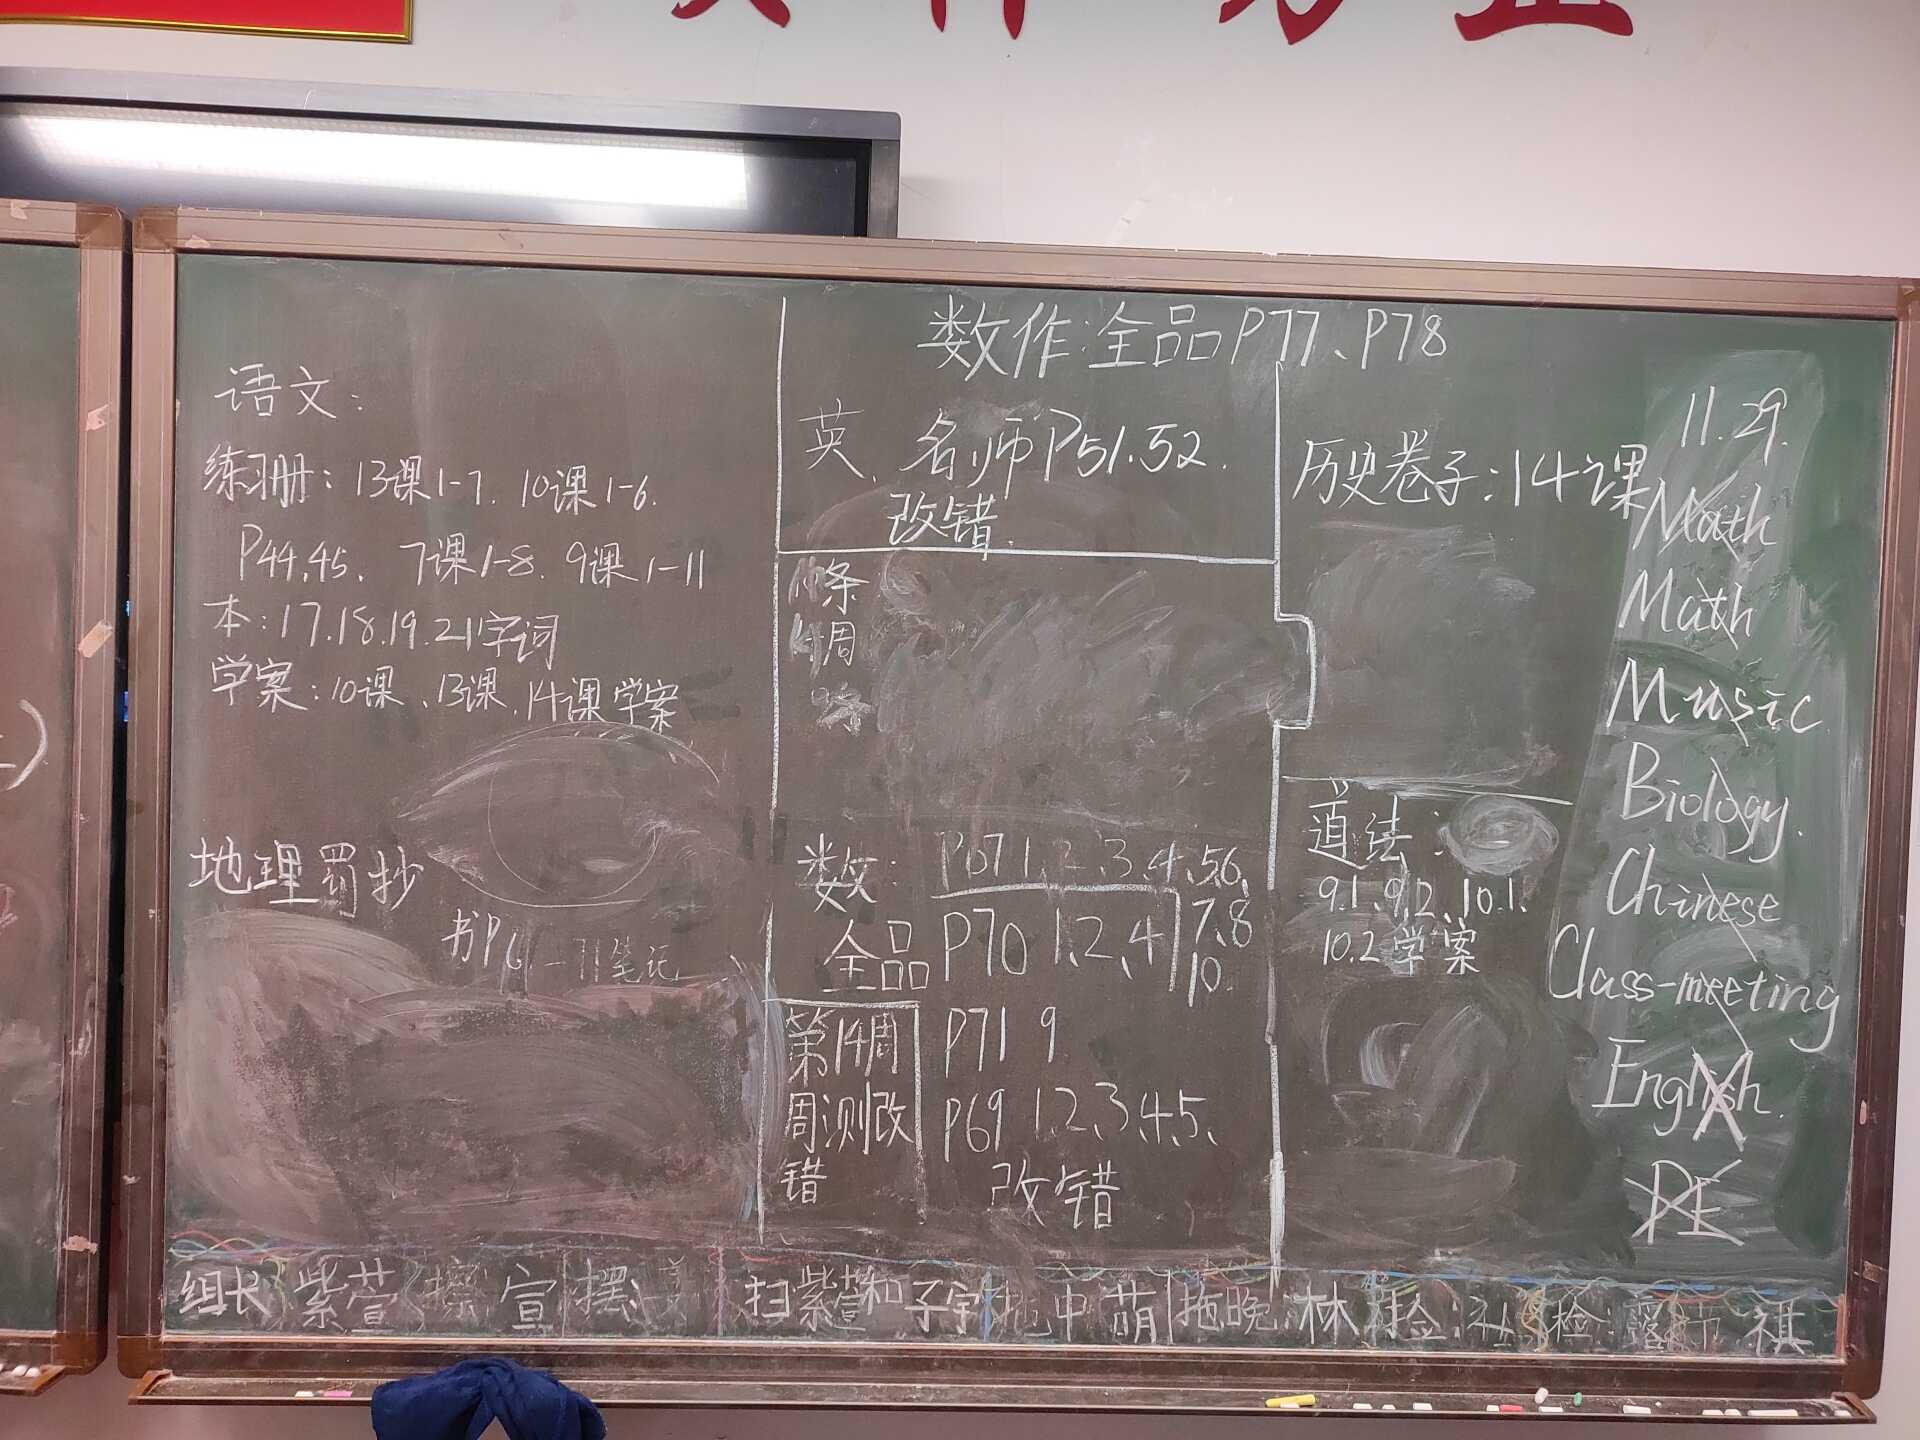 数作:全品P77、P78
语文:
练习册:13课1-7. 10课1-6.
P44.45. 7课1-8. 9课1-11
本:17.18.19.21字词
学案:10课、13课.14课学案
地理蜀抄
书P61-71笔记
英. 名师P51.52.
改错.
条
周
数: P67 1、2、3、4、5、6、
7、8
10.
全品 P70 1、2、4
P71 9
P69 1、2、3、4、5、
改错
第14周
周测改
错
历史卷子:14课
道法:
9.1、9.2、10.1、
10.2学案
11.29.
Math
Math
Music
Biology.
Chinese
Class-meeting
English.
PE
组长 紫萱 擦 宣 摆 扫 紫萱和子宇 中 萌 拖晚:林 捡 检 祺